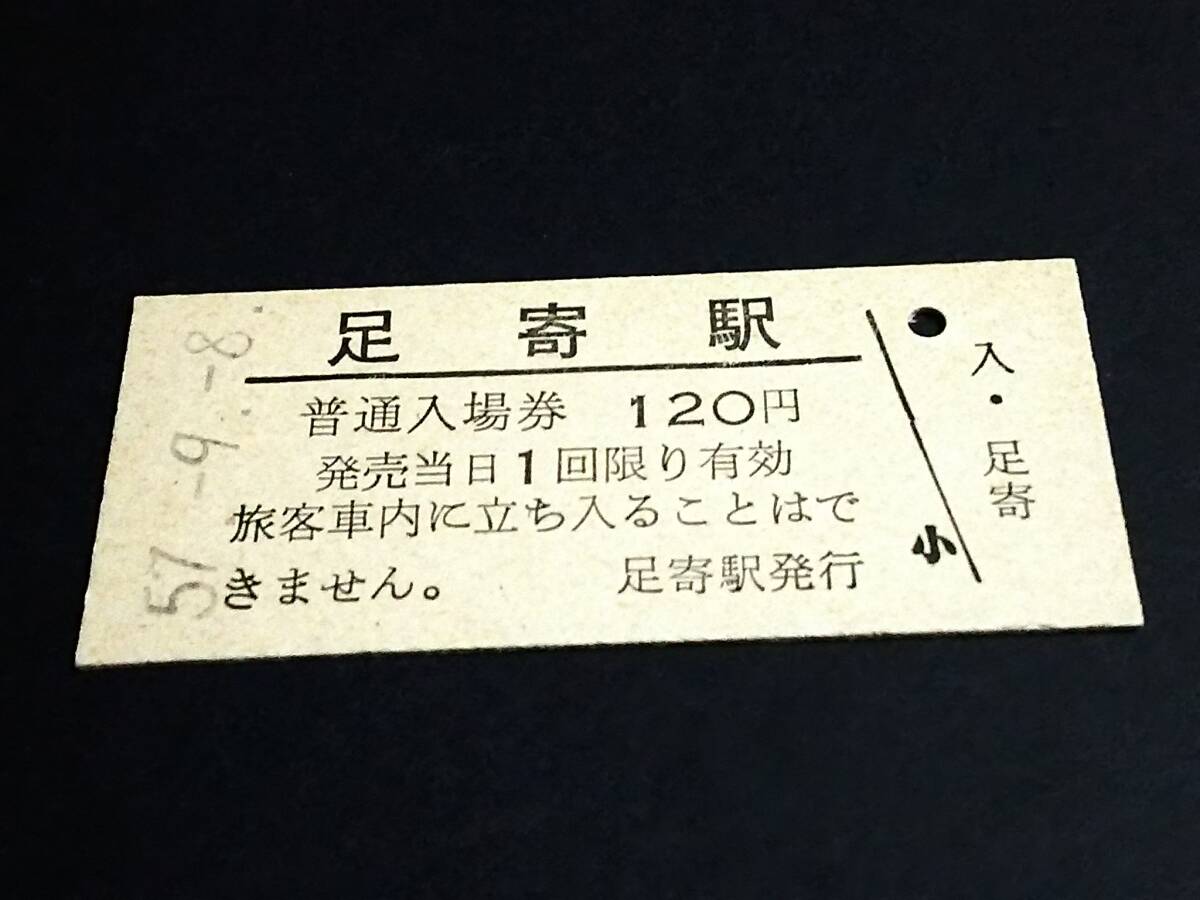 足寄駅
普通入場券 120円
発売当日1回限り有効
旅客車内に立ち入ることはで
きません。 足寄駅発行
小
入・足寄
57.-9.-8.